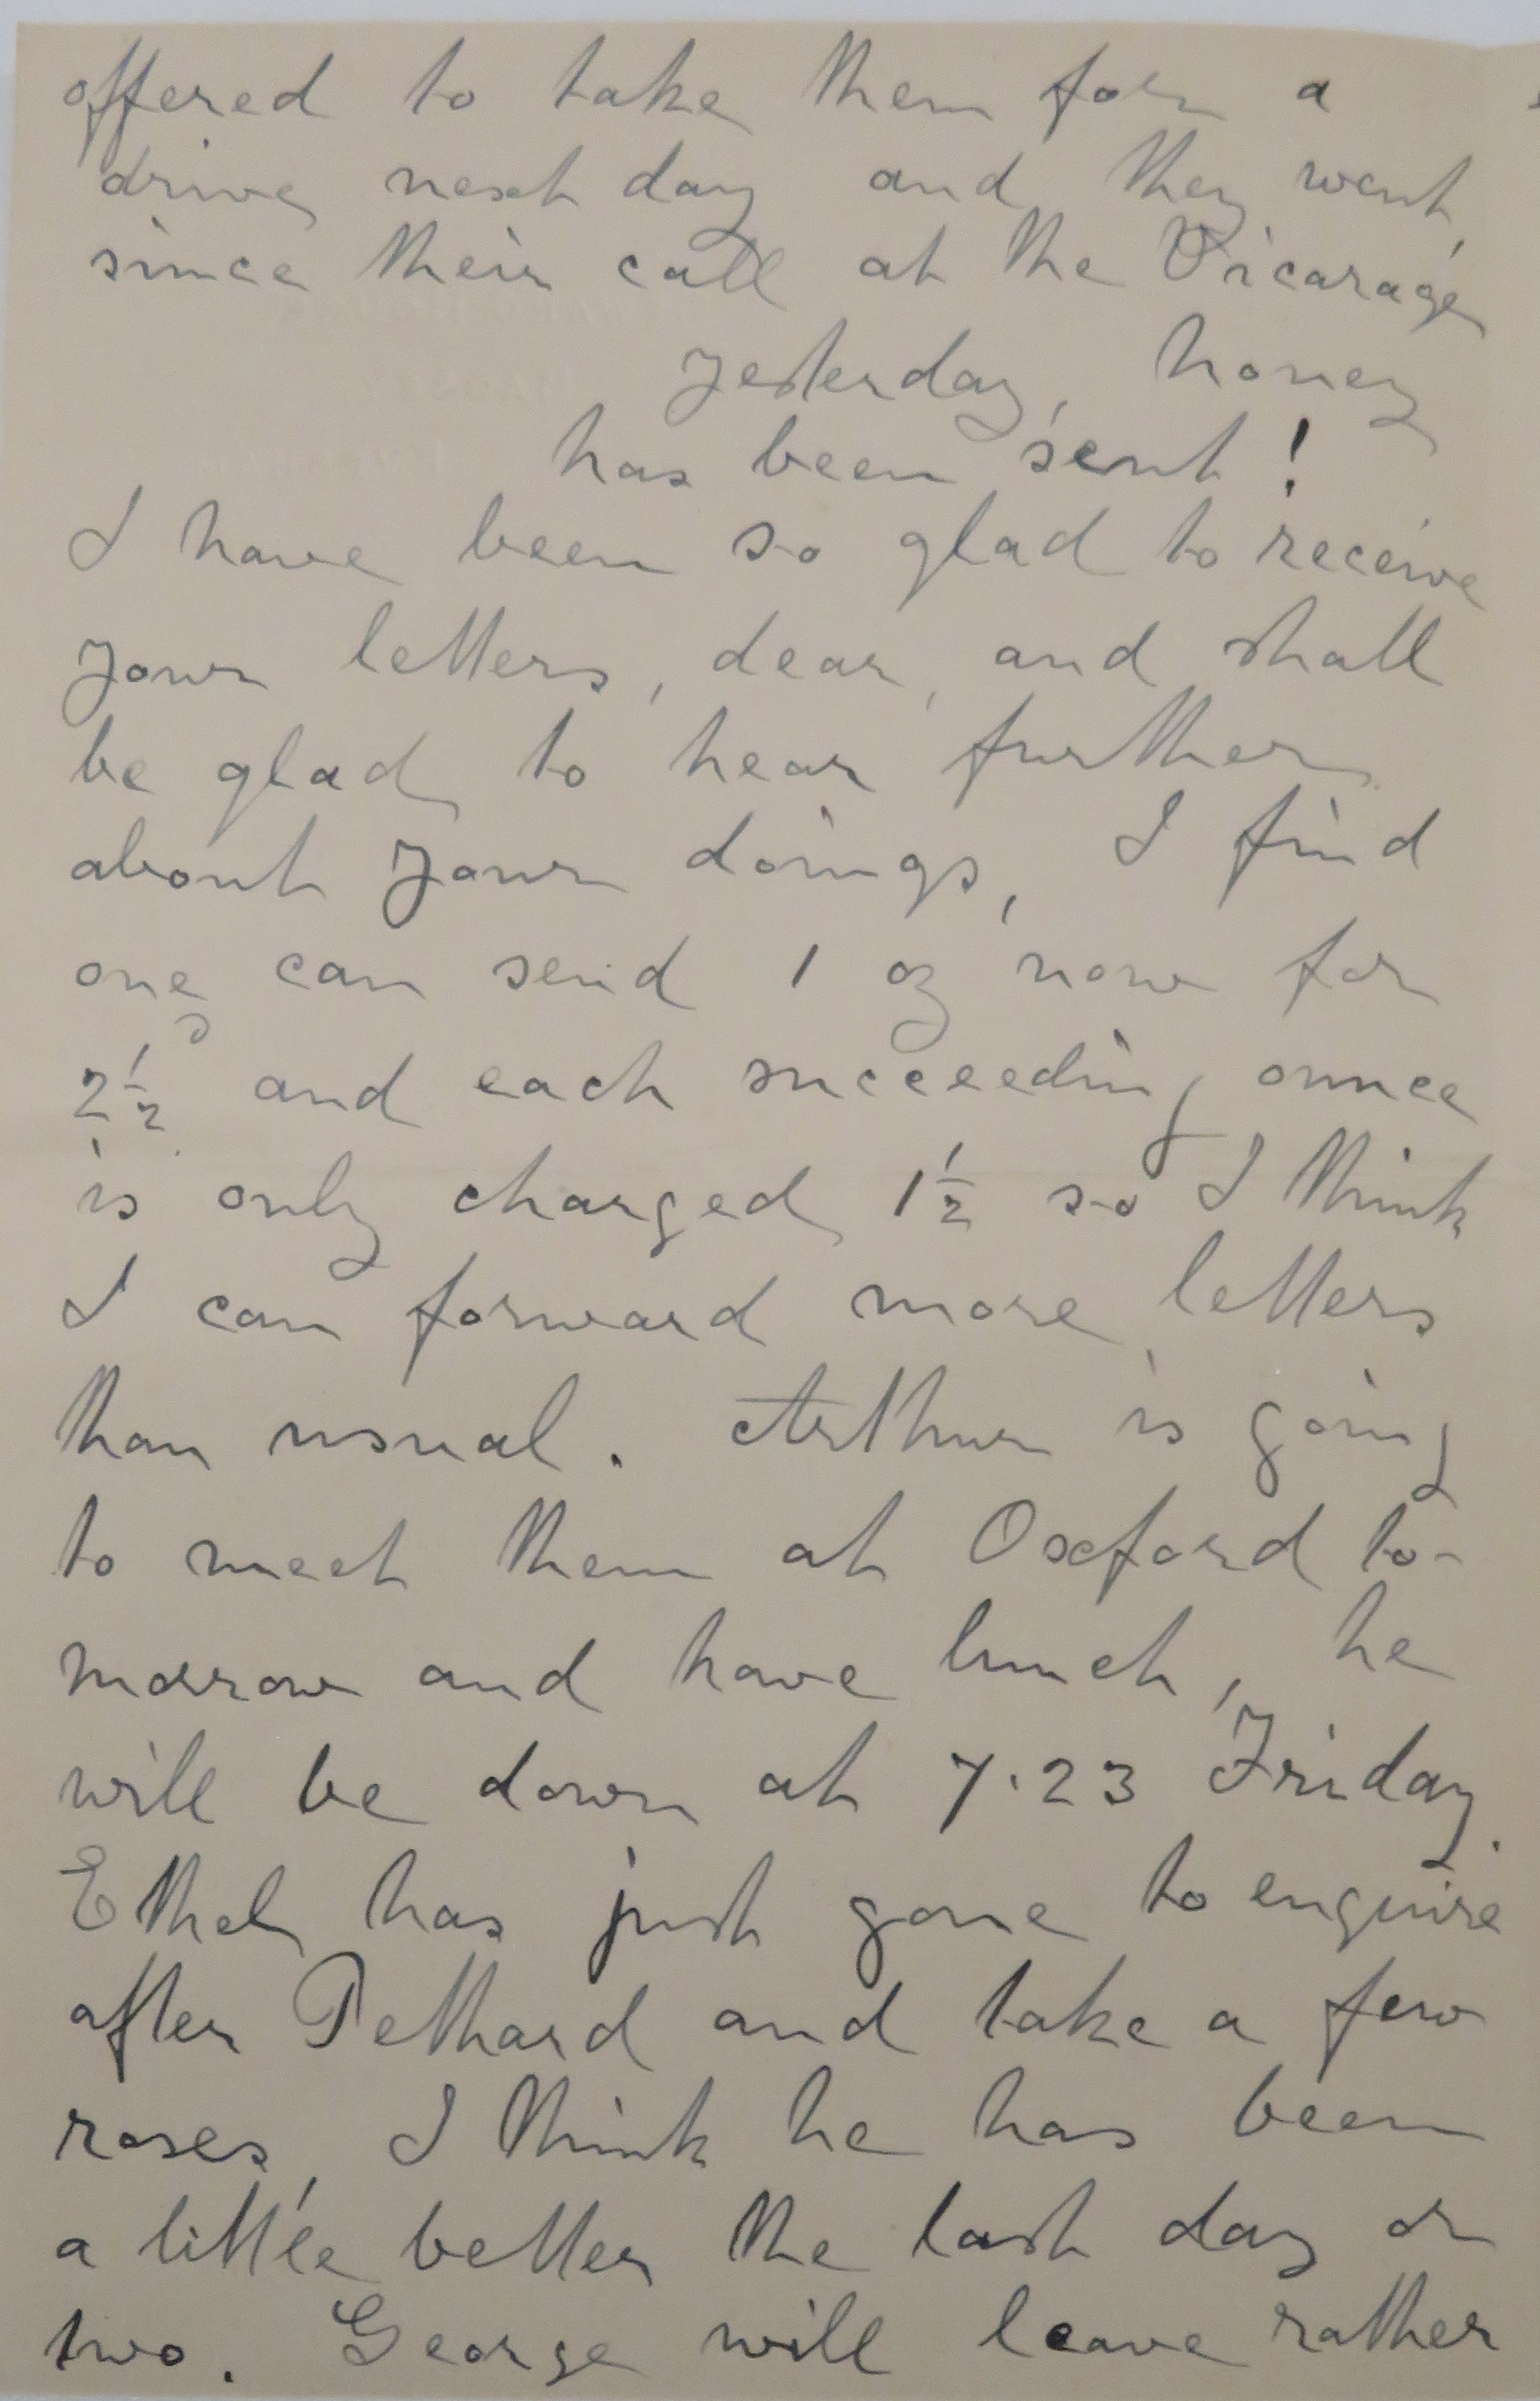 offered to take them for a
drive next day and they went,
since their call at the Vicarage
yesterday, honey
has been sent!
I have been so glad to receive
your letters, dear, and shall
be glad to hear further
about your doings, I find
one can send 1 oz now for
2½ and each succeeding ounce
is only charged 1½ so I think
I can forward more letters
than usual. Arthur is going
to meet them at Oxford to-
morrow and have lunch, he
will be down at 7.23 Friday.
Ethel has just gone to enquire
after Pethard and take a few
roses, I think he has been
a little better the last day or
two. George will leave rather